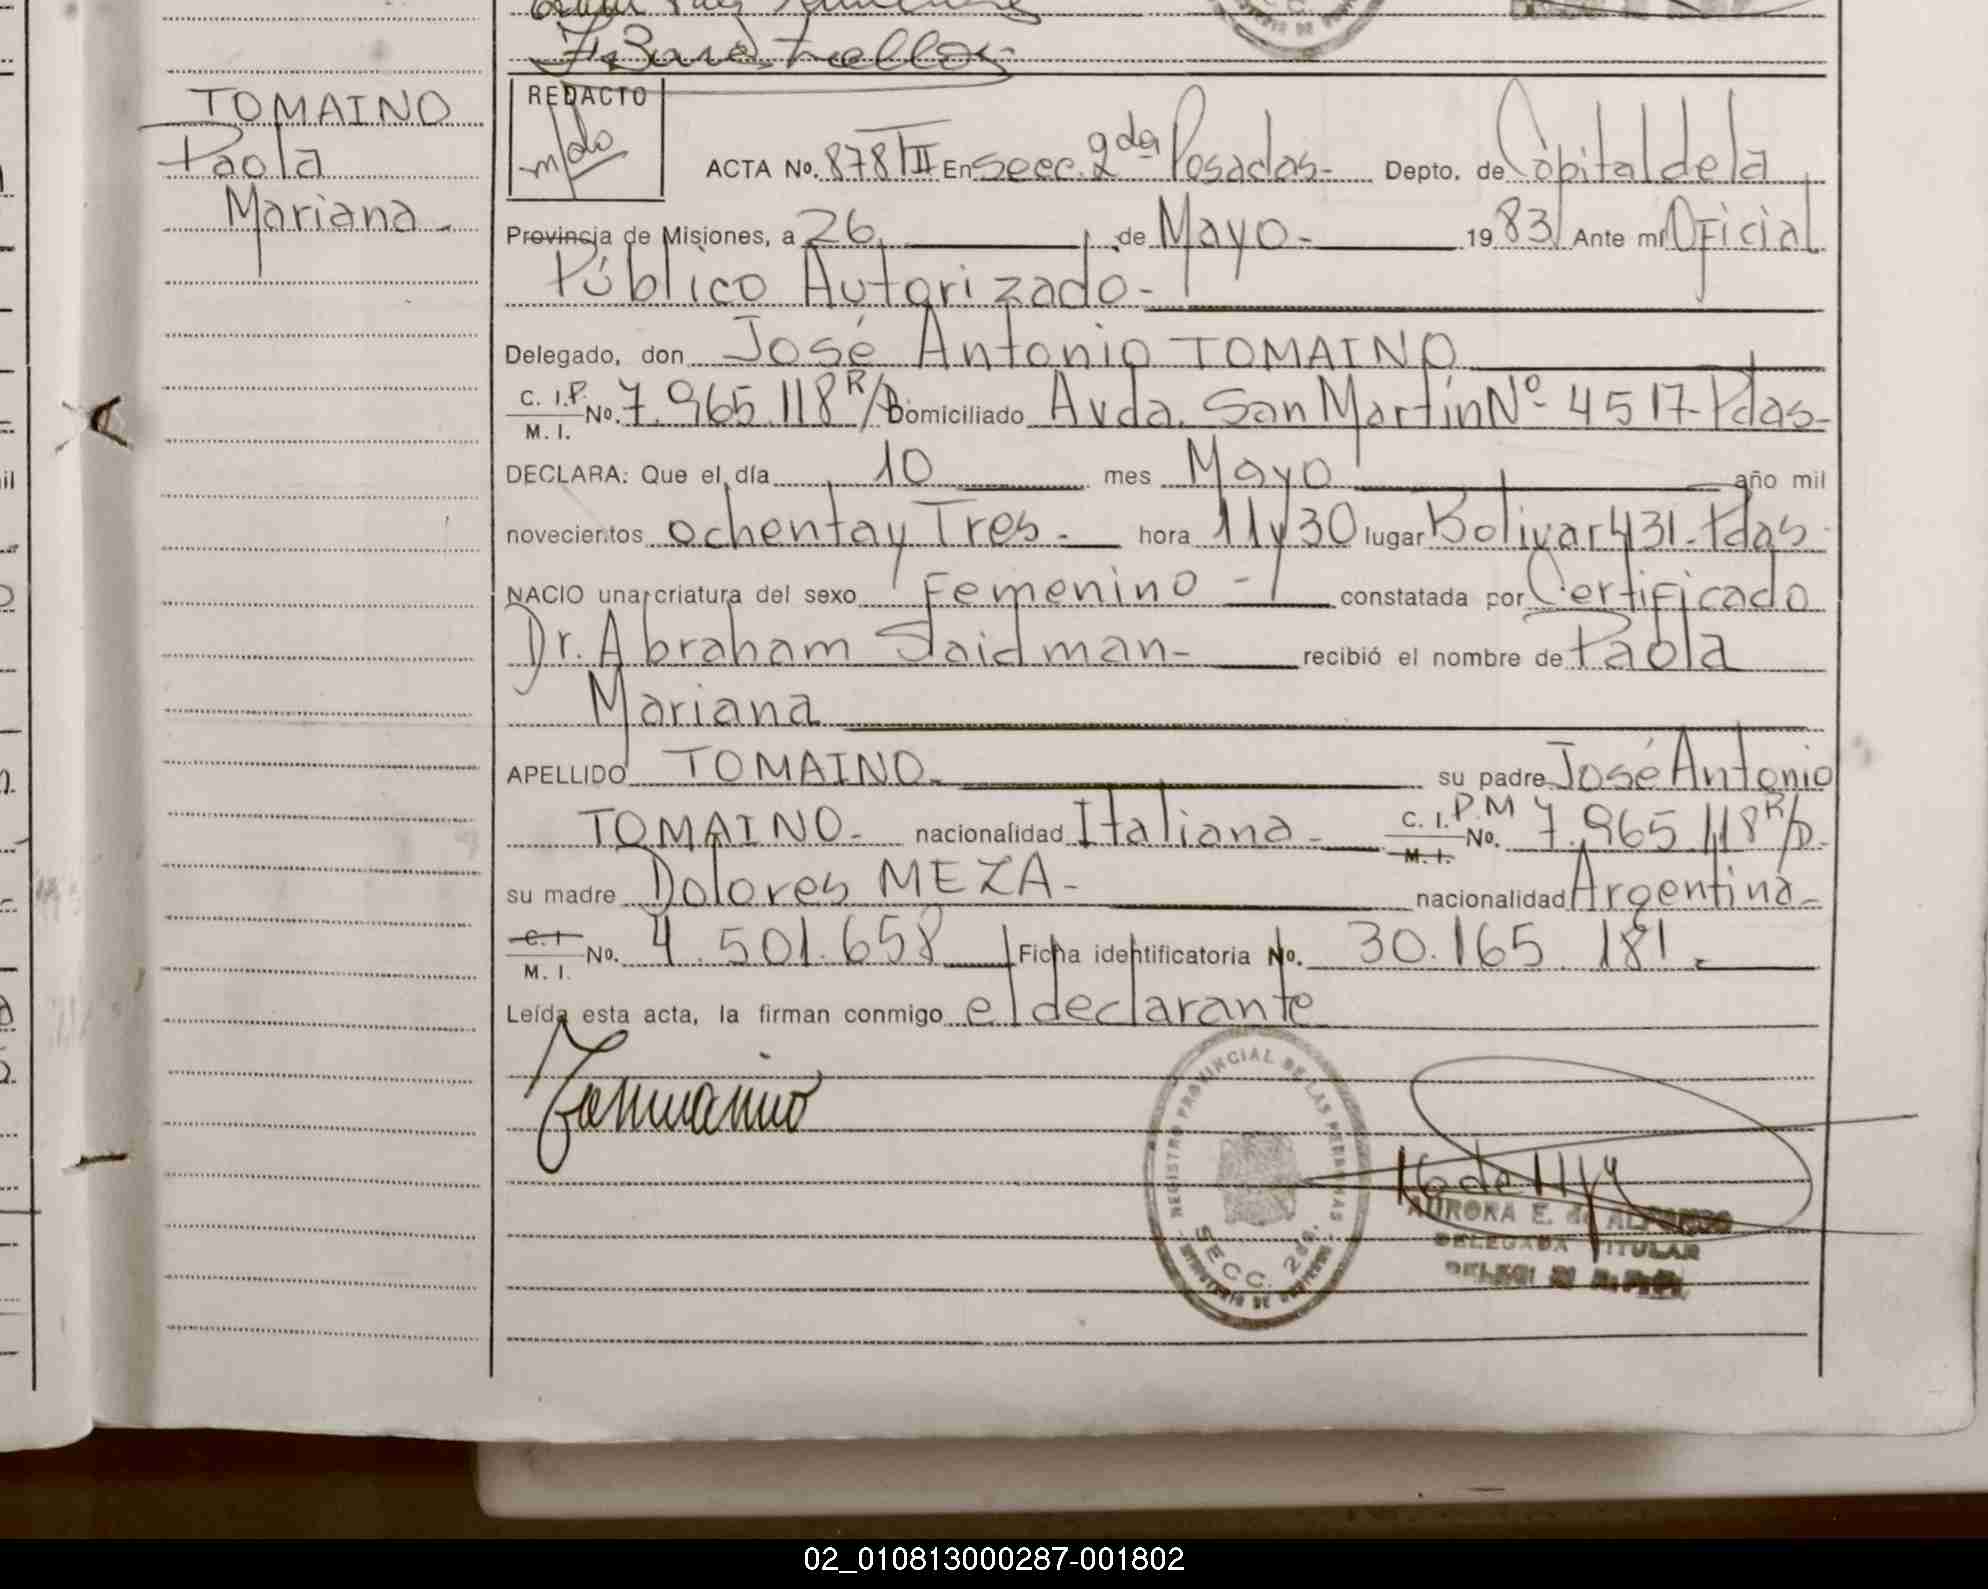 TOMAINO
Paola
Mariana -
REDACTO
ACTA No. 878/II En Secc. 2da Posadas- Depto. de Capital de la
Provincia de Misiones, a 26, de Mayo- 1983 Ante mí Oficial
Público Autorizado-
Delegado, don José Antonio TOMAINO
C. I.P. M. I. No. 7.965.118 R/D Domiciliado Avda. San Martín Nº 4517-Pdas-
DECLARA: Que el día 10 mes Mayo año mil
novecientos ochenta y Tres- hora 11 y 30 lugar Bolivar 431-Pdas-
NACIO una criatura del sexo Femenino - constatada por Certificado
Dr. Abraham Saidman- recibió el nombre de Paola
Mariana
APELLIDO TOMAINO- su padre José Antonio
TOMAINO- nacionalidad Italiana- C. I.P.M M. I. No. 7.965.118 R/D-
su madre Dolores MEZA- nacionalidad Argentina-
C. I M. I. No. 4.501.658 Ficha identificatoria No. 30.165.181.
Leída esta acta, la firman conmigo el declarante
Tomaino
REGISTRO PROVINCIAL DE LAS PERSONAS
SECC. 2da.
AURORA E. de ALFONZO
DELEGADA TITULAR
02_010813000287-001802